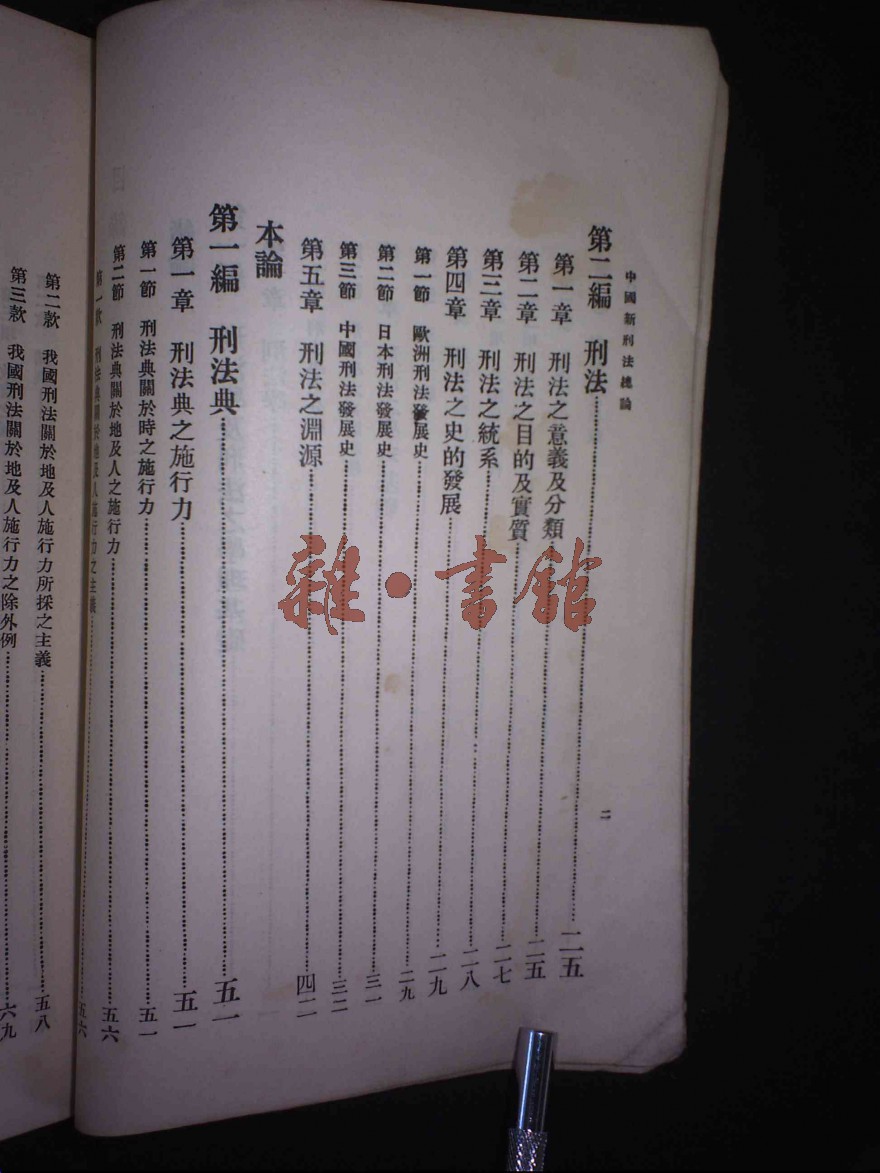 中國新刑法總論 二
第二編 刑法……二五
第一章 刑法之意義及分類……二五
第二章 刑法之目的及實質……二七
第三章 刑法之統系……二八
第四章 刑法之史的發展……二九
第一節 歐洲刑法發展史……二九
第二節 日本刑法發展史……三一
第三節 中國刑法發展史……三二
第五章 刑法之淵源……四二
本論
第一編 刑法典……五一
第一章 刑法典之施行力……五一
第一節 刑法典關於時之施行力……五一
第二節 刑法典關於地及人之施行力……五六
第一款 刑法典關於地及人施行力之主義……五六
第二款 我國刑法關於地及人施行力所採之主義……五八
第三款 我國刑法關於地及人施行力之除外例……六九
雜·書館